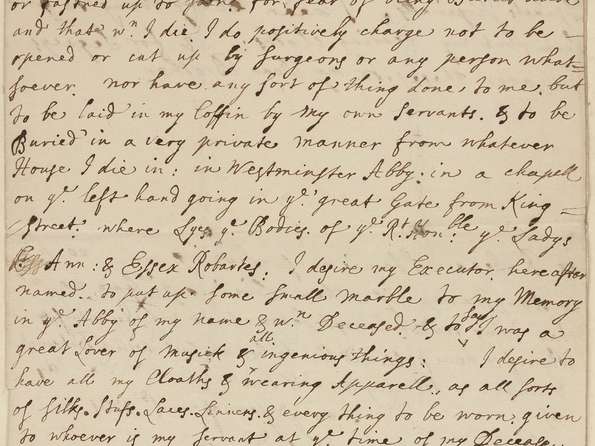 and that wn I die, I do positively charge not to be
opened or cut up by surgeons or any person what=
soever. nor have any sort of thing done to me, but
to be laid in my Coffin by my own servants. & to be
Buried in a very private manner from whatever
House I die in: in Westminster Abby. in a chapell
on ye left hand going in ye great Gate from King=
=street. where Lyes ye Bodies of ye Rt Honble ye Ladys
Ann: & Essex Robartes. I desire my Executor hereafter
named. to put up some small marble to my Memory
in ye Abby of my name & wn Deceased. & to say I was a
great Lover of Musick & all ingenious things: I desire to
have all my Cloaths & wearing Apparell, as all sorts
of silks. stufs. Laces. Linnens. & every thing to be worn. given
to whoever is my servant at ye time of my Decease.